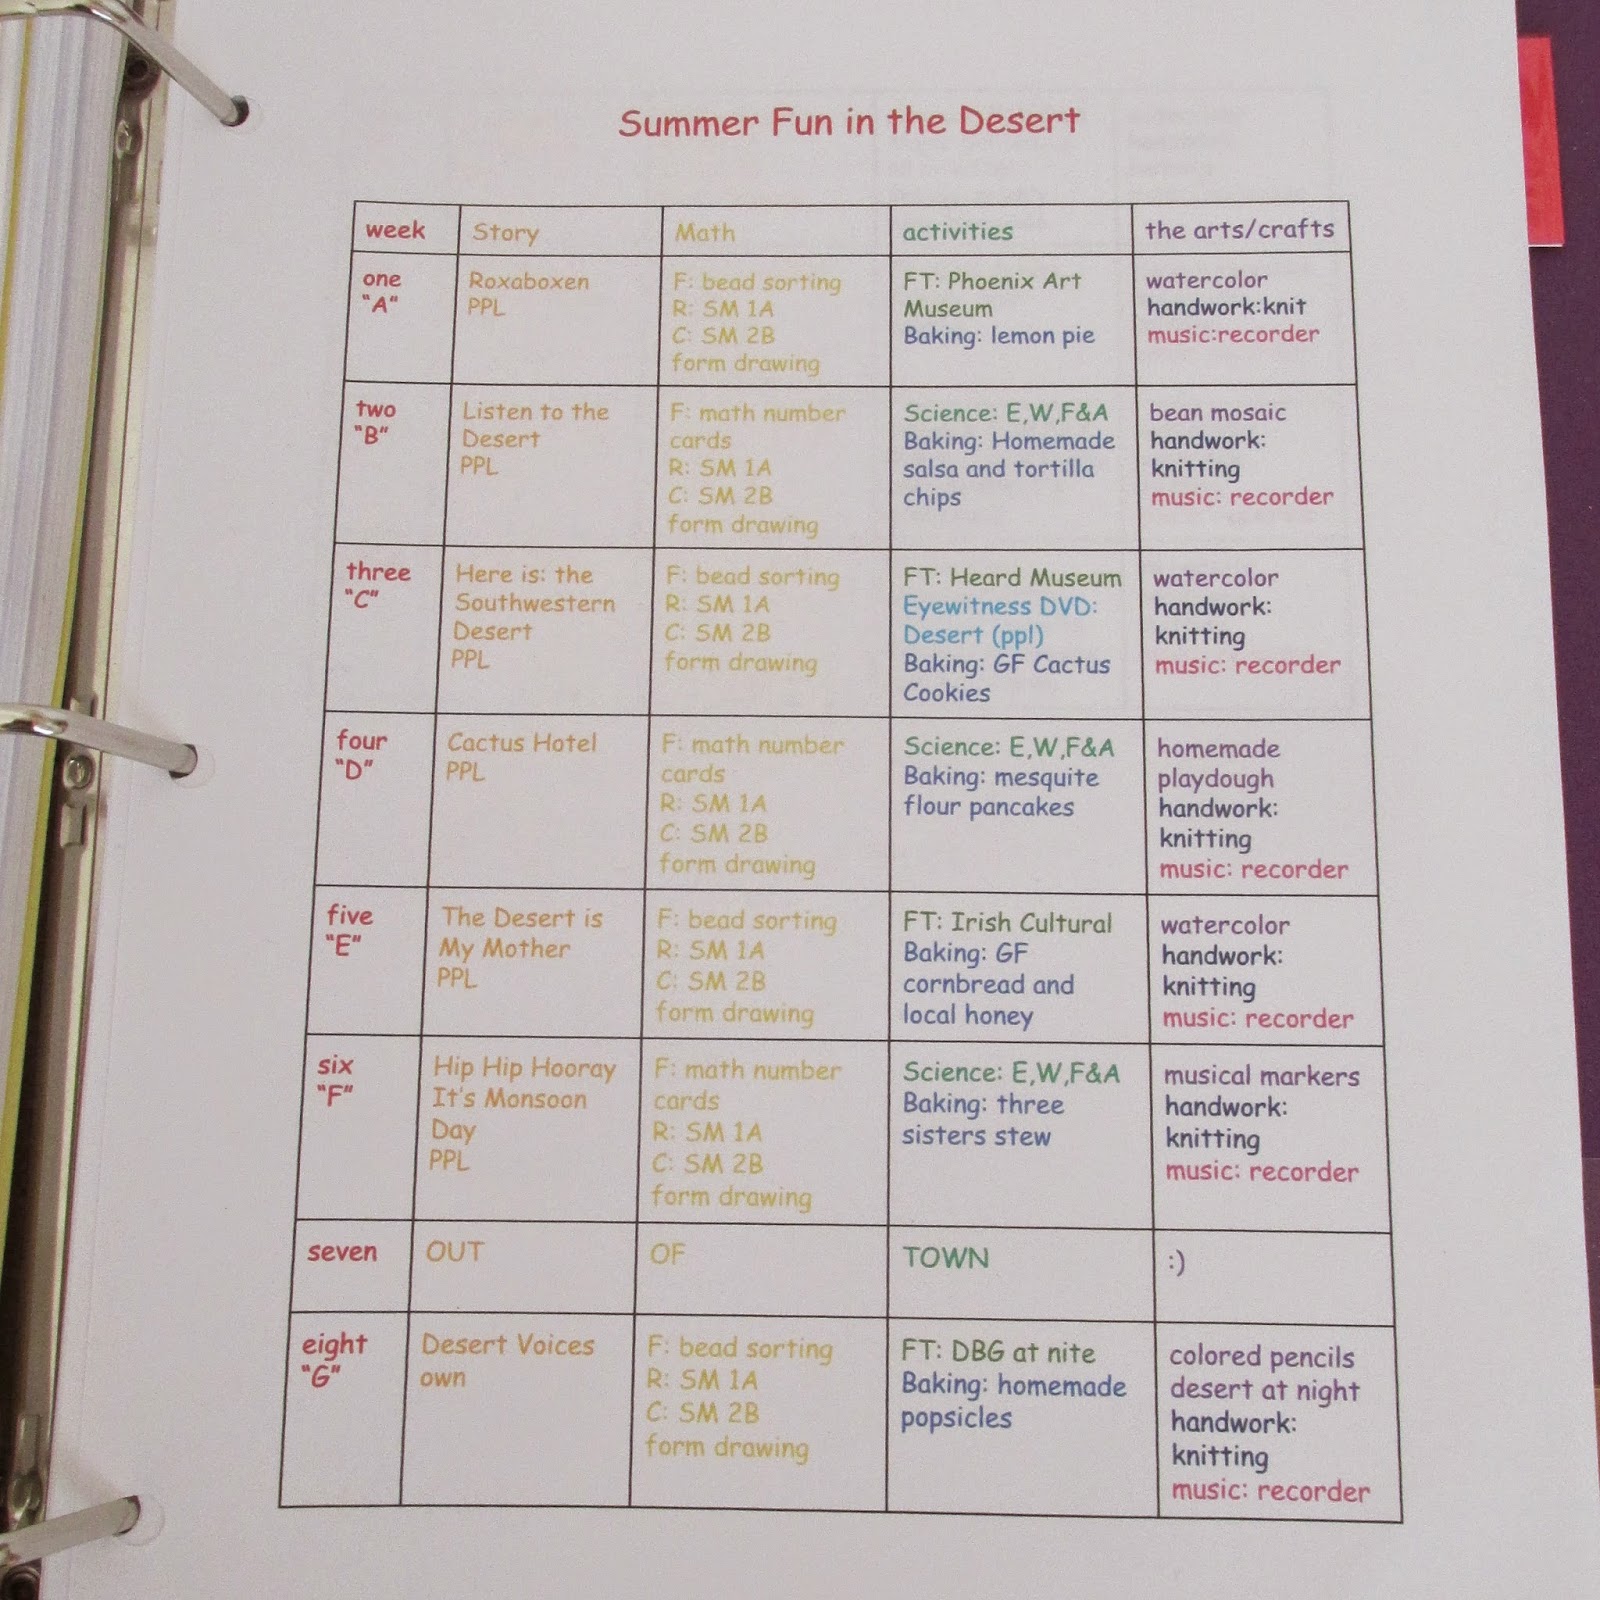 Summer Fun in the Desert
week Story Math activities the arts/crafts
one
"A"
Roxaboxen
PPL
F: bead sorting
R: SM 1A
C: SM 2B
form drawing
FT: Phoenix Art
Museum
Baking: lemon pie
watercolor
handwork:knit
music:recorder
two
"B"
Listen to the
Desert
PPL
F: math number
cards
R: SM 1A
C: SM 2B
form drawing
Science: E,W,F&A
Baking: Homemade
salsa and tortilla
chips
bean mosaic
handwork:
knitting
music: recorder
three
"C"
Here is: the
Southwestern
Desert
PPL
F: bead sorting
R: SM 1A
C: SM 2B
form drawing
FT: Heard Museum
Eyewitness DVD:
Desert (ppl)
Baking: GF Cactus
Cookies
watercolor
handwork:
knitting
music: recorder
four
"D"
Cactus Hotel
PPL
F: math number
cards
R: SM 1A
C: SM 2B
form drawing
Science: E,W,F&A
Baking: mesquite
flour pancakes
homemade
playdough
handwork:
knitting
music: recorder
five
"E"
The Desert is
My Mother
PPL
F: bead sorting
R: SM 1A
C: SM 2B
form drawing
FT: Irish Cultural
Baking: GF
cornbread and
local honey
watercolor
handwork:
knitting
music: recorder
six
"F"
Hip Hip Hooray
It's Monsoon
Day
PPL
F: math number
cards
R: SM 1A
C: SM 2B
form drawing
Science: E,W,F&A
Baking: three
sisters stew
musical markers
handwork:
knitting
music: recorder
seven OUT OF TOWN :)
eight
"G"
Desert Voices
own
F: bead sorting
R: SM 1A
C: SM 2B
form drawing
FT: DBG at nite
Baking: homemade
popsicles
colored pencils
desert at night
handwork:
knitting
music: recorder